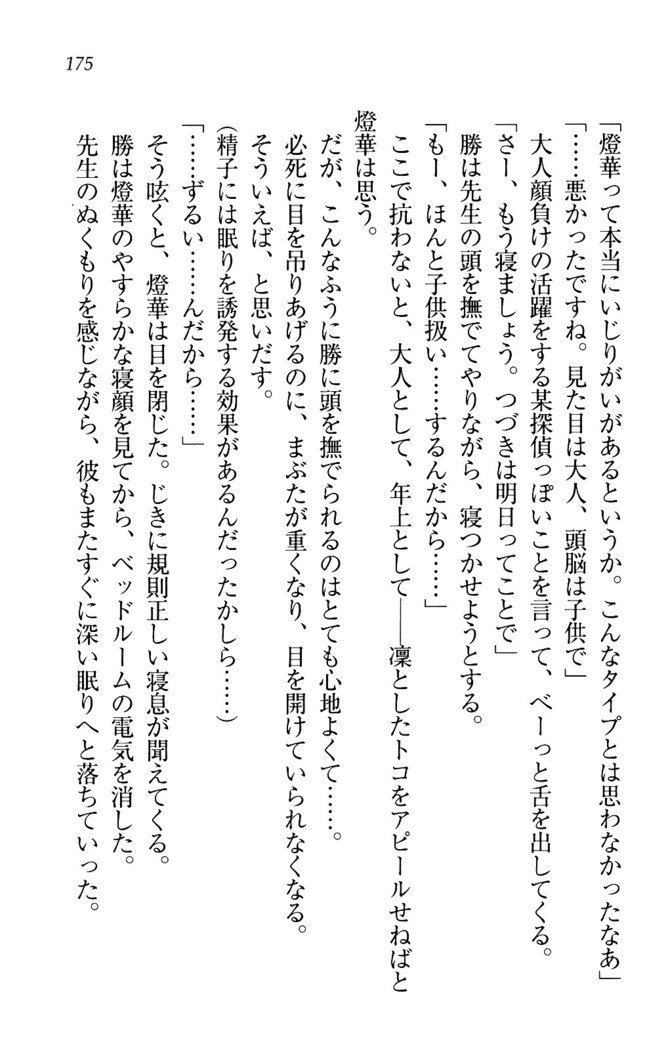 175
「燈華って本当にいじりがいがあるというか。こんなタイプとは思わなかったなあ」
「……悪かったですね。見た目は大人、頭脳は子供で」
大人顔負けの活躍をする某探偵っぽいことを言って、べーっと舌を出してくる。
「さー、もう寝ましょう。つづきは明日ってことで」
勝は先生の頭を撫でてやりながら、寝つかせようとする。
「もー、ほんと子供扱い……するんだから……」
ここで抗わないと、大人として、年上として――凜としたトコをアピールせねばと
燈華は思う。
だが、こんなふうに勝に頭を撫でられるのはとても心地よくて……。
必死に目を吊りあげるのに、まぶたが重くなり、目を開けていられなくなる。
そういえば、と思いだす。
(精子には眠りを誘発する効果があるんだったかしら……)
「……ずるい……んだから……」
そう呟くと、燈華は目を閉じた。じきに規則正しい寝息が聞えてくる。
勝は燈華のやすらかな寝顔を見てから、ベッドルームの電気を消した。
先生のぬくもりを感じながら、彼もまたすぐに深い眠りへと落ちていった。